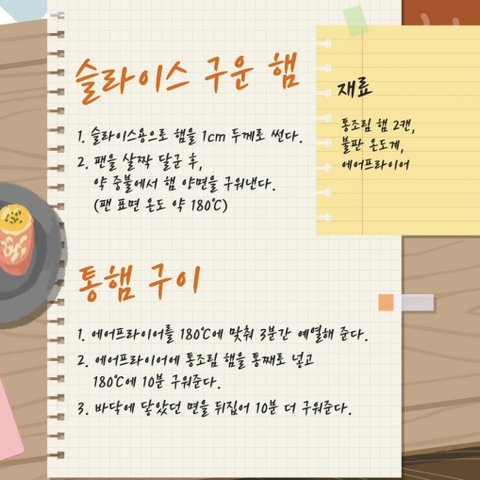 슬라이스 구운 햄
1. 슬라이스용으로 햄을 1cm 두께로 썬다.
2. 팬을 살짝 달군 후,
약 중불에서 햄 양면을 구워낸다.
(팬 표면 온도 약 180℃)
재료
통조림 햄 2캔,
불판 온도계,
에어프라이어
통햄 구이
1. 에어프라이어를 180℃에 맞춰 3분간 예열해 준다.
2. 에어프라이어에 통조림 햄을 통째로 넣고
180℃에 10분 구워준다.
3. 바닥에 닿았던 면을 뒤집어 10분 더 구워준다.